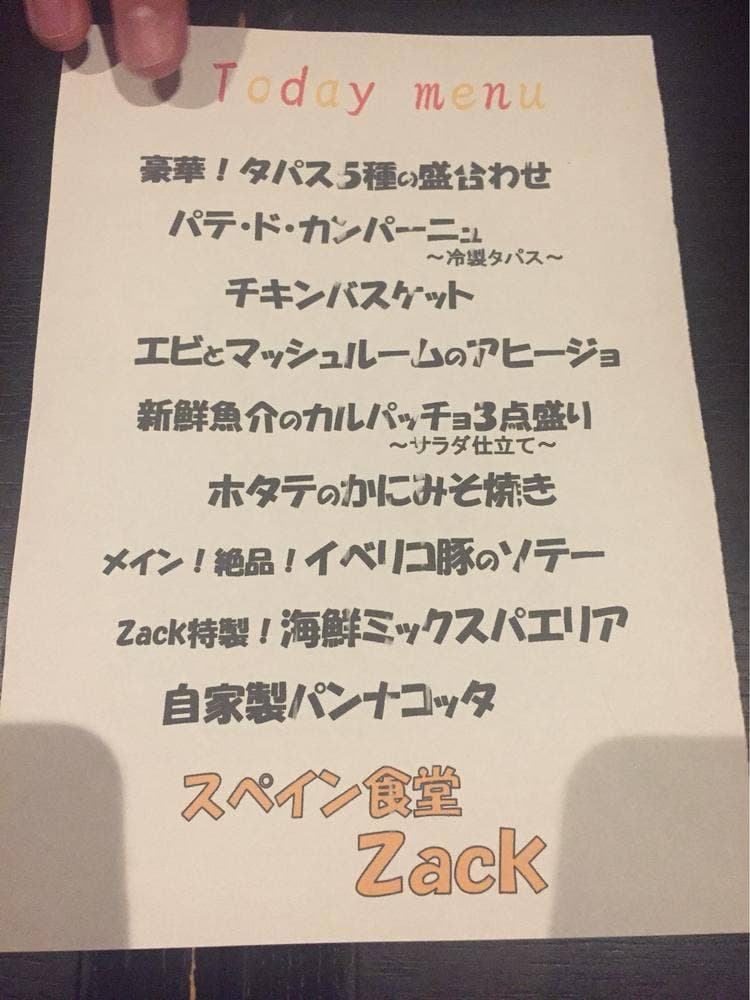 Today menu
豪華！タパス5種の盛合わせ
パテ・ド・カンパーニュ
～冷製タパス～
チキンバスケット
エビとマッシュルームのアヒージョ
新鮮魚介のカルパッチョ3点盛り
～サラダ仕立て～
ホタテのかにみそ焼き
メイン！絶品！イベリコ豚のソテー
Zack特製！海鮮ミックスパエリア
自家製パンナコッタ
スペイン食堂
Zack